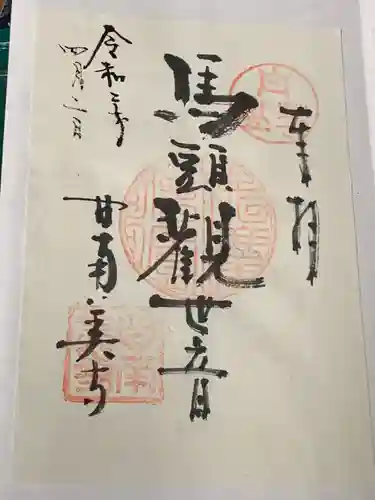 奉拝
馬頭観世音
甘南美寺
令和二年
四月二日